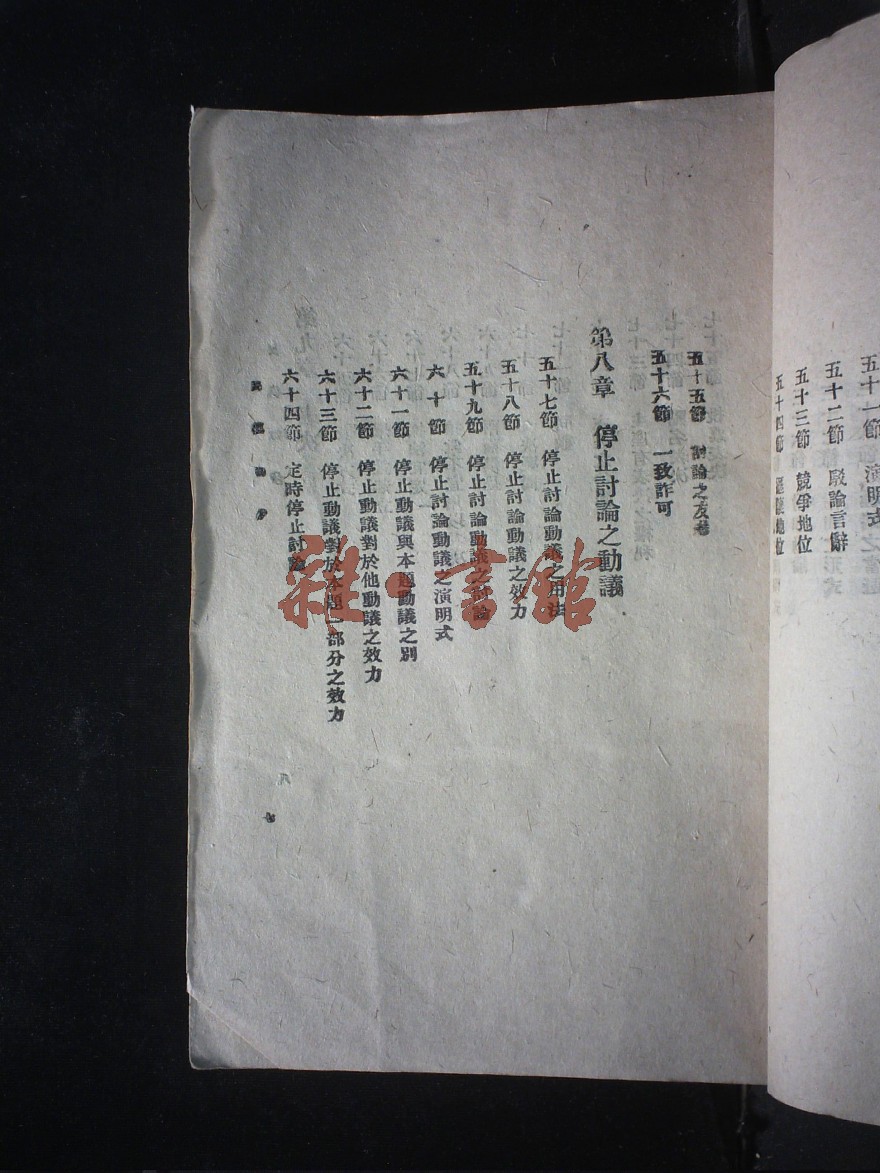 五十一節 演明式
五十二節 駁論言辭
五十三節 競爭地位
五十四節 地位
五十五節 討論之友善
五十六節 一致許可
第八章 停止討論之動議
五十七節 停止討論動議之用法
五十八節 停止討論動議之效力
五十九節 停止討論動議之討論
六十節 停止討論動議之演明式
六十一節 停止動議與本題動議之別
六十二節 停止動議對於他動議之效力
六十三節 停止動議對於本題一部分之效力
六十四節 定時停止討論
七
雜·書館